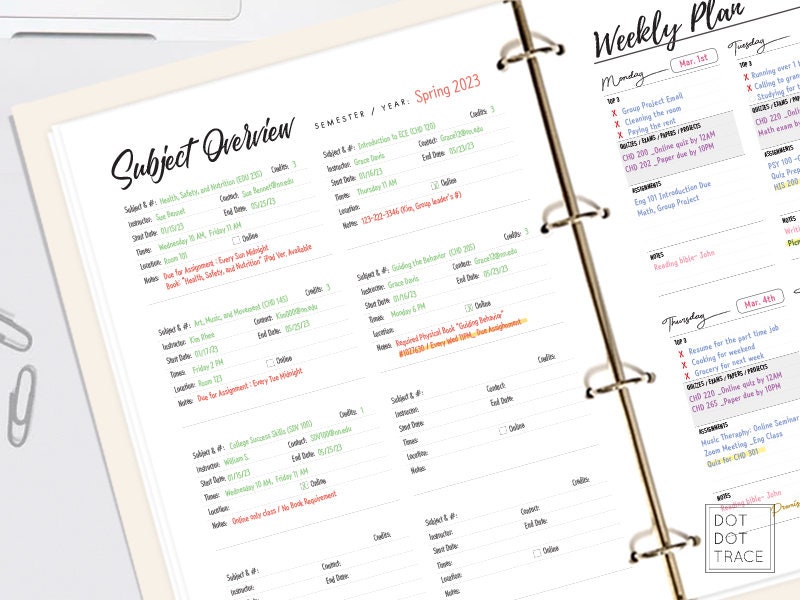 Subject Overview
SEMESTER / YEAR: Spring 2023
Subject & #: Health, Safety, and Nutrition (EDU 230) Credits: 3
Instructor: Sue Bennet Contact: Sue Bennet@nn.edu
Start Date: 01/15/23 End Date: 05/25/23
Times: Wednesday 10 AM, Friday 11 AM
Location: Room 101 Online
Notes: Due for Assignment : Every Sun Midnight
Book: "Health, Safety, and Nutrition" iPad Ver. Available
Subject & #: Introduction to ECE (CHD 120) Credits: 3
Instructor: Grace Davis Contact: Grace12@nn.edu
Start Date: 01/16/23 End Date: 05/23/23
Times: Thursday 11 AM
Location: Online
Notes: 123-222-3346 (Kim, Group leader's #)
Subject & #: Art, Music, and Movement (CHD 145) Credits: 3
Instructor: Kim Rhee Contact: Kim000@nn.edu
Start Date: 01/17/23 End Date: 05/25/23
Times: Friday 2 PM
Location: Room 123 Online
Notes: Due for Assignment : Every Tue Midnight
Subject & #: Guiding the Behavior (CHD 205) Credits: 3
Instructor: Grace Davis Contact: Grace12@nn.edu
Start Date: 01/16/23 End Date: 05/23/23
Times: Monday 6 PM
Location: Online
Notes: Required Physical Book "Guiding Behavior"
#1027630 / Every Wed 11PM_ Due Assignment
Subject & #: College Success Skills (SDV 100) Credits: 1
Instructor: William S. Contact: SDV100@nn.edu
Start Date: 01/15/23 End Date: 05/25/23
Times: Wednesday 10 AM, Friday 11 AM
Location: Online
Notes: Online only class / No Book Requirement
Subject & #: Credits:
Instructor: Contact:
Start Date: End Date:
Times:
Location: Online
Notes:
Subject & #: Credits:
Instructor: Contact:
End Date:
Subject & #: Credits:
Instructor: Contact:
Start Date: End Date:
Times:
Location: Online
Notes:
Weekly Plan
Monday Mar. 1st
TOP 3
X Group Project Email
X Cleaning the room
X Paying the rent
QUIZZES / EXAMS / PAPERS / PROJECTS
CHD 200 _Online quiz by 12AM
CHD 202 _Paper due by 10PM
ASSIGNMENTS
Eng 101 Introduction Due
Math, Group Project
NOTES
Reading bible- John
Tuesday
TOP 3
X Running over 1
X Calling to
X Studying for
QUIZZES / EXAMS / PA
CHD 220 _Onl
Math exam by
ASSIGNMENTS
PSY 100
Quiz Prep
HIS 200
NOTES
Thursday Mar. 4th
TOP 3
X Resume for the part time job
X Cooking for weekend
X Grocery for next week
QUIZZES / EXAMS / PAPERS / PROJECTS
CHD 220 _Online quiz by 12AM
CHD 265 _Paper due by 10PM
ASSIGNMENTS
Music Theraphy: Online Seminar
Zoom Meeting _Eng Class
Quiz for CHD 301
NOTES
Reading bible- John
DOT
DOT
TRACE